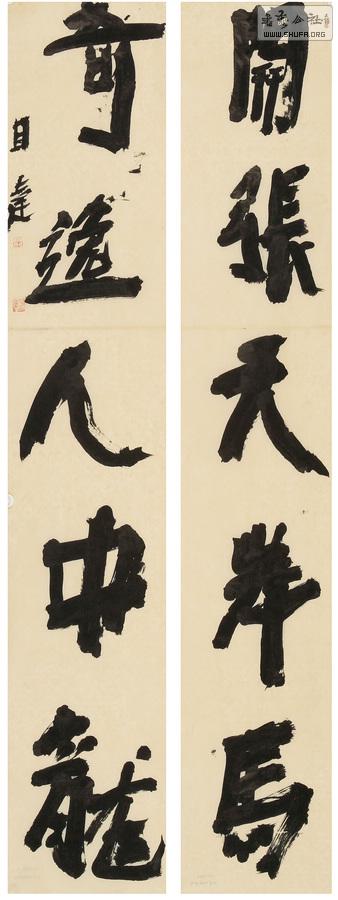 開張天岸馬
奇逸人中龍
WWW.SHUFA.ORG